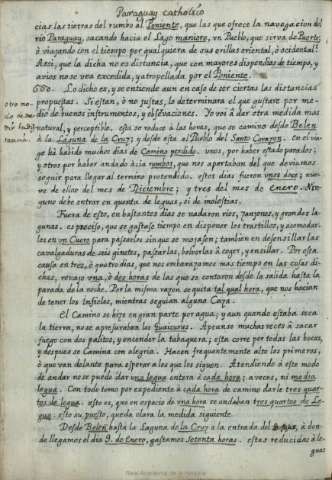 Paraguay Catholico
cias las tierras del rumbo al Poniente, que las que ofrece la navegacion del
rio Paraguay, sacando hacia el Lago manioré, un Pueblo, que serva de Puerto;
ò viajando con el tiempo por qualquiera de sus orillas oriental, ò occidental:
Assi, que la dicha no es distancia, que con mayores dispendios de tiempo, y
avios no se vea excedida, y atropellada por el Poniente.
600. Lo dicho es, y se entiende aun en caso de ser ciertas las distancias
propuestas. Si estan, ò no justas, lo determinarà el que gustare por me-
dio de buenos instrumentos, y observaciones. Yo voi à dar otra medida mas
otro mo-
do de me-
dir
natural, y perceptible. esta se reduce à las horas, que se camino desde Belen
à la Laguna de la Cruz; y desde esta al Pueblo del Santo Corazon. en el via-
ge hà habido muchos dias de Camino perdido. unos, por haber estado parados;
y otros por haber andado àcia rumbos, que nos apartaban del que deviamos
seguir para llegar al termino pretendido. estos dias fueron unos doce; nue-
ve de ellos del mes de Diciembre; y tres del mes de enero. Nin-
guno debe entrar en quenta de leguas, si de molestias.
Fuera de esto, en bastantes dias se nadaron rios, zanjones, y grandes la-
gunas. es preciso, que se gastasse tiempo en disponer los trastillos, y acomodar-
les en un Cuero para passarlos sin que se mojasen; tambien en desensillar las
cavalgaduras de seis ginetes, passarlas, bolverlas à coger, y ensillar. Por esta
causa en tres, ò quatro dias, que nos embarazamos mas tiempo en las cosas di-
chas, rebajo una, ò dos horas de las que se contaron desde la salida hasta la
parada de la noche. Por la misma razon se quita tal qual hora, que nos hacian
de tener los Infieles, mientras seguian alguna Caza.
El Camino se hizo en gran parte por agua; y aun quando estaba seca
la tierra, no se aprejuraban los Guaicurus. Apeanse muchas veces à sacar
fuego con dos palitos, y encender la tabaquera; esta corre por todas las bocas,
y despues se Camina con alegria. Hacen frequentemente alto los primeros,
ò que van delante para esperar à los que les siguen. Atendiendo à este modo
de andar no se puede dar una legua entera à cada hora; a veces, ni media
legua. Con todo tomo por expediente à cada hora de camino darle tres quar-
tos de legua. esto es, que en espacio de una hora se andaban tres quartos de Le-
gua. esto supuesto, queda clara la medida siguiente.
Desde Belen hasta la Laguna de la Cruz à la entrada del à don-
de llegamos el dia 9. de Enero, gastamos setenta horas. estas reducidas à le-
guas
Real Academia de la Historia